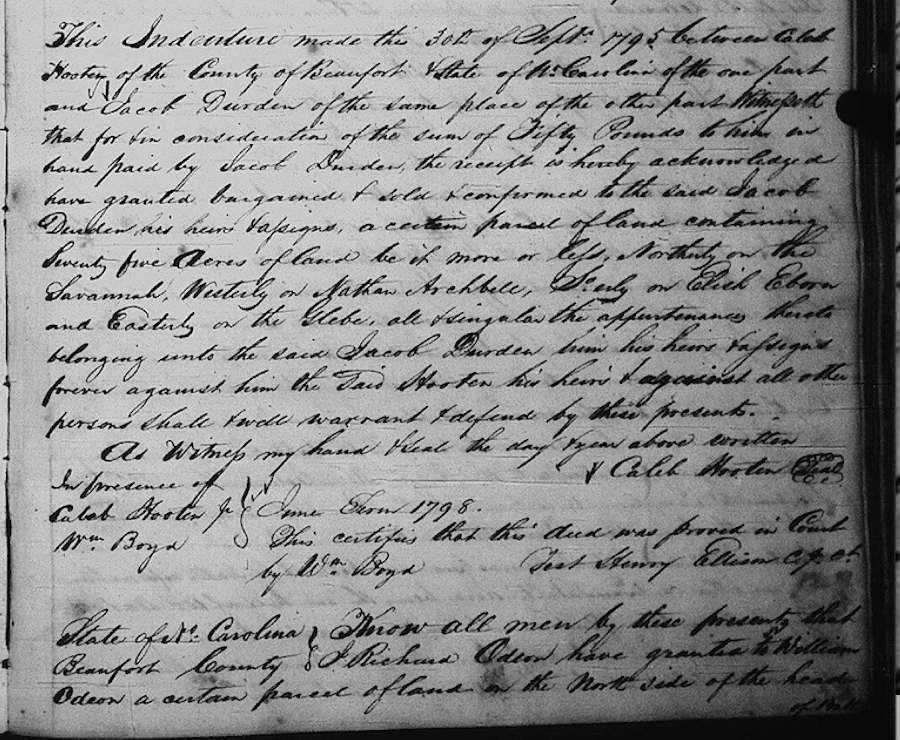 This Indenture made this 30th of Septr. 1795 between Caleb
Hooten of the County of Beaufort & State of No. Carolina of the one part
and Jacob Durden of the same place of the other part Witnesseth
that for & in consideration of the sum of Fifty Pounds to him in
hand paid by Jacob Durden, the receipt is hereby acknowledged
have granted bargained & sold & confirmed to the said Jacob
Durden his heirs & assigns, a certain parcel of land containing
Seventy five Acres of land be it more or less, Northerly on the
Savannah, Westerly on Nathan Archbell, So.erly on Elish Eborn
and Easterly on the Glebe, all & singular the appurtenances thereto
belonging unto the said Jacob Durden him his heirs & assigns
forever against him the said Hooten his heirs & against all other
persons shall & will warrant & defend by these presents.
As Witness my hand & seal the day & year above written
Caleb Hooten Seal
In presence of
Caleb Hooten Jr
Wm. Boyd
June Term 1798.
This certifies that this deed was proved in Court
by Wm. Boyd Test Henry Ellison C.C. Ct.
State of No. Carolina
Beaufort County
Know all men by these presents that
I Richard Odeon have granted to William
Odeon a certain parcel of land on the North side of the head
of